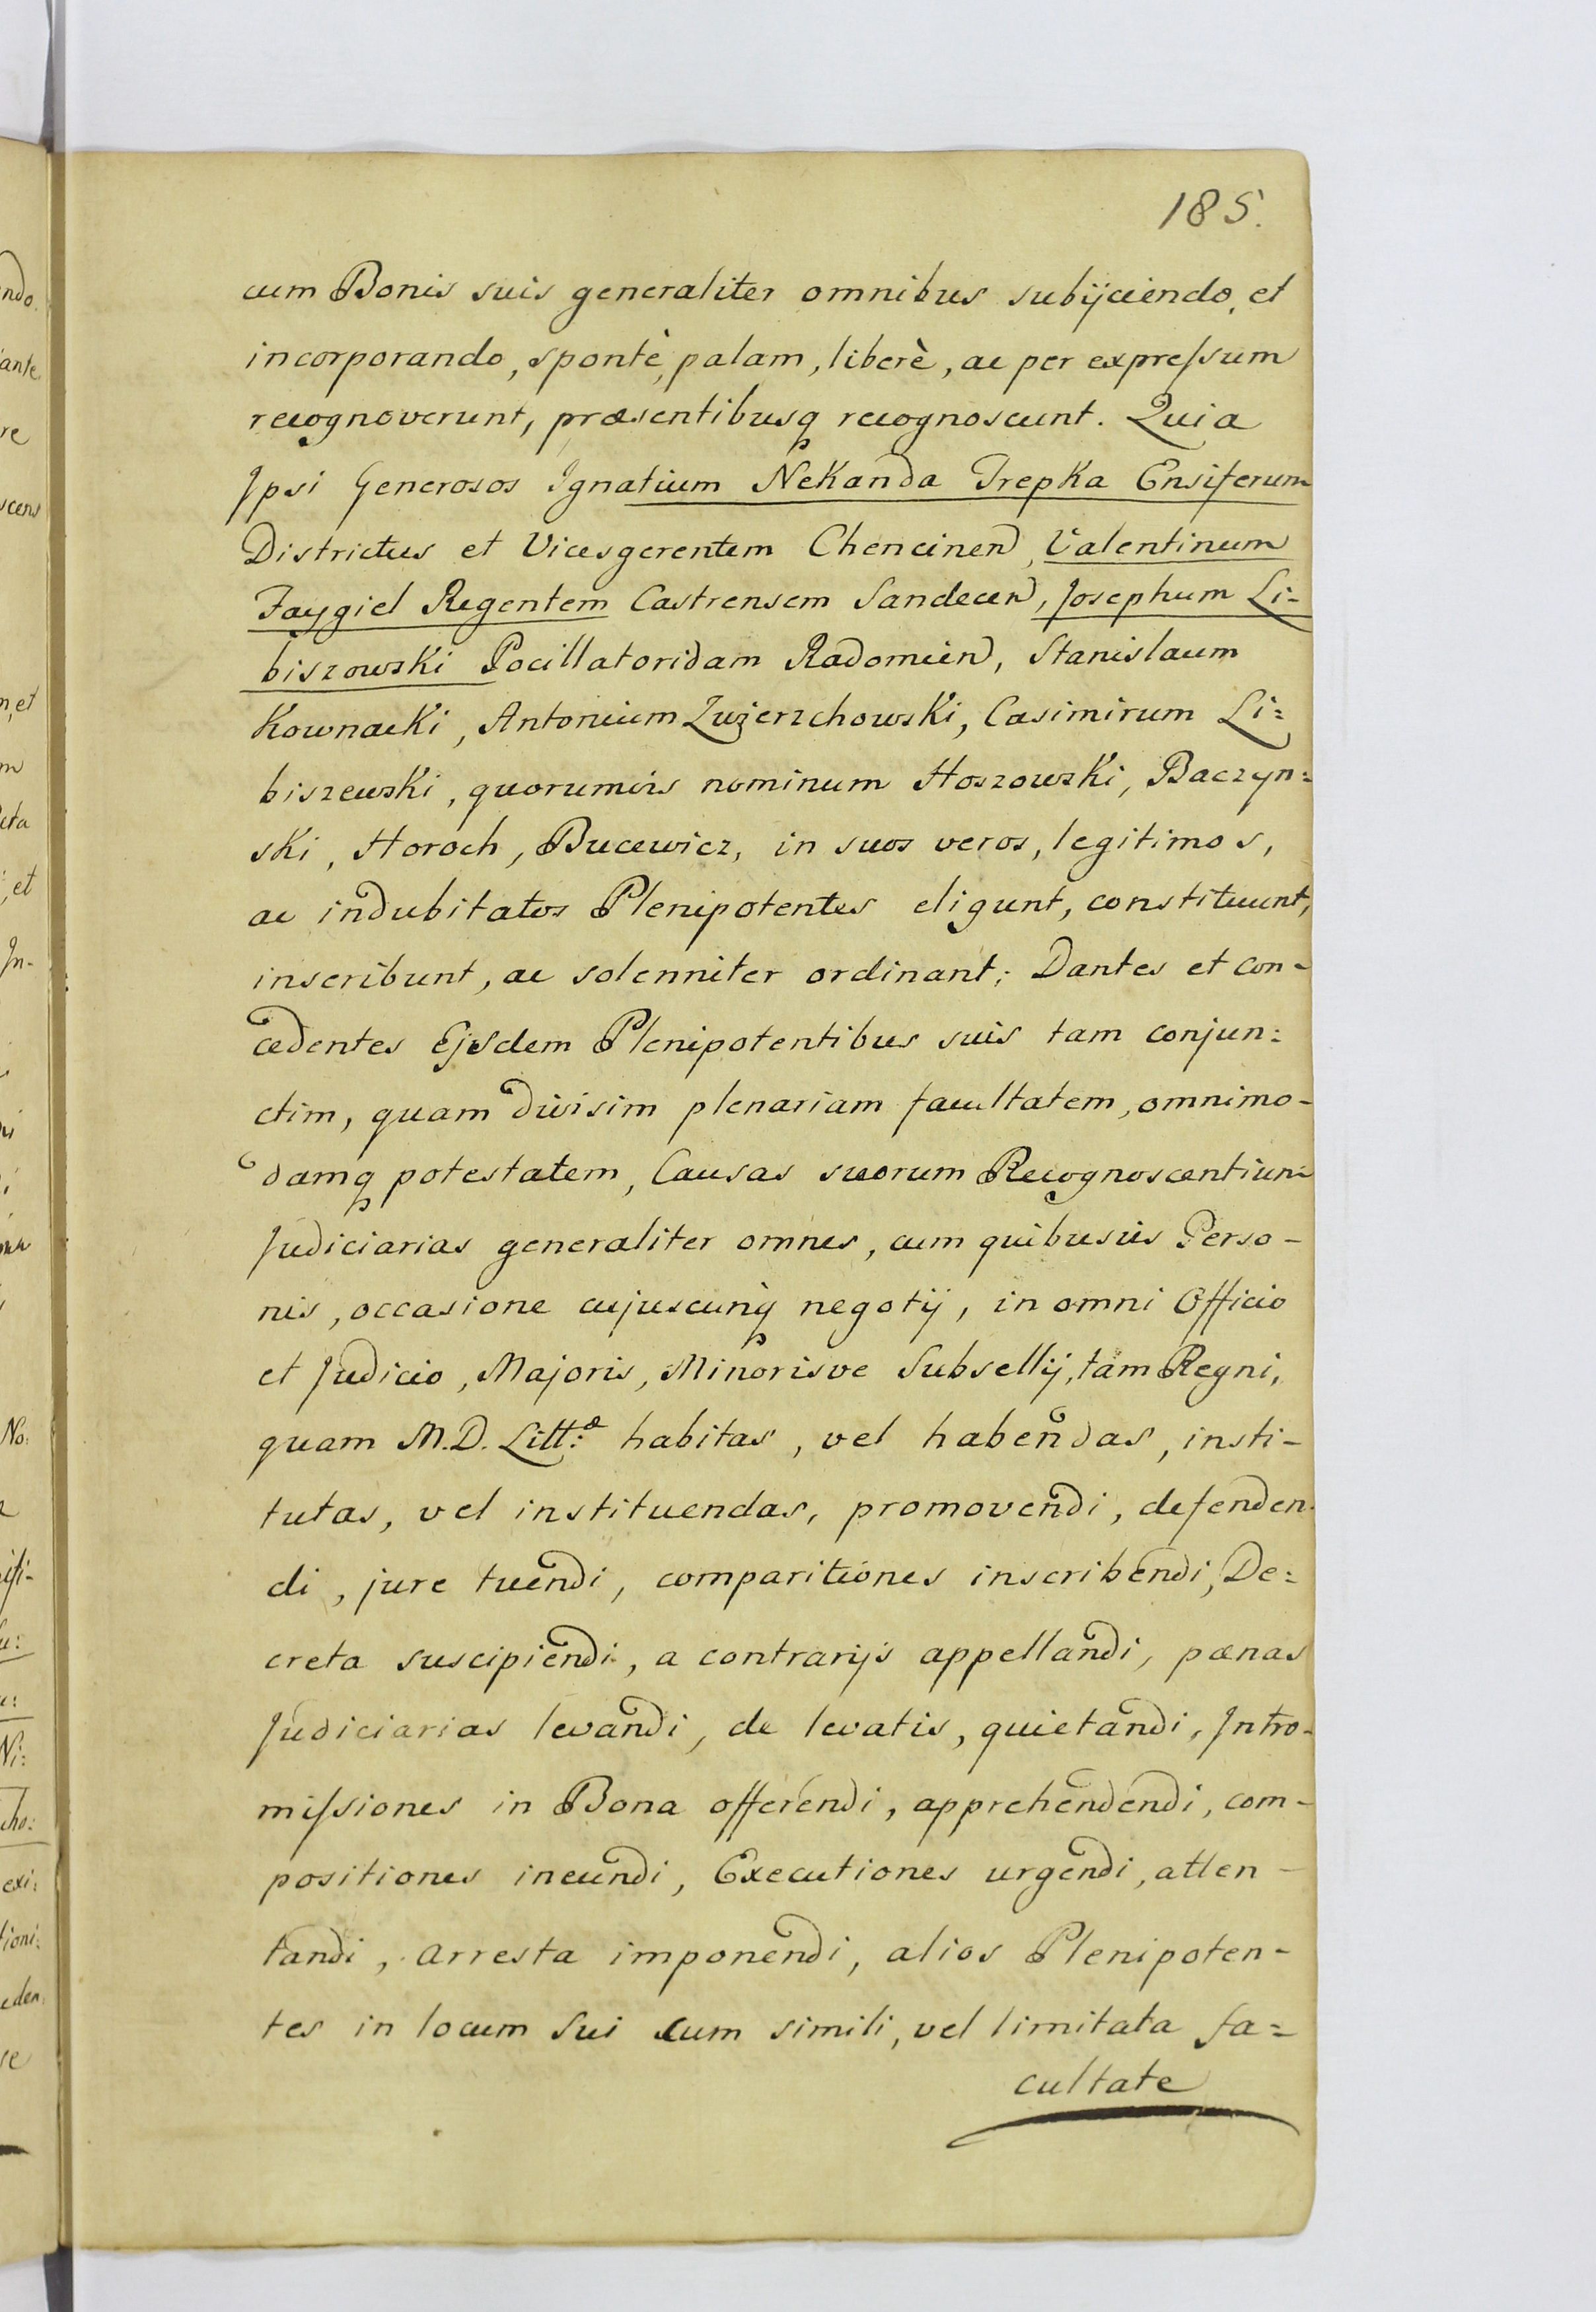 185.
cum Bonis suis generaliter omnibus subijciendo, et
incorporando, spontè, palam, liberè, ac per expreſsum
recognoverunt, præsentibusq recognoscunt. Quia
Ipsi Generosos Ignatium Nekanda Trepka Ensiferum
Districtus et Vicesgerentem Chencinen, Valentinum
Faygiel Regentem Castrensem Sandecen, Josephum Li-
biszowski Pocillatoridam Radomien, Stanislaum
Kownacki, Antonium Zwierzchowski, Casimirum Li=
biszewski, quorumvis nominum Hoszowski, Baczyn=
ski, Horoch, Bucewicz, in suos veros, legitimos,
ac indubitatos Plenipotentes eligunt, constituunt,
inscribunt, ac solenniter ordinant; Dantes et con-
cedentes Ejsdem Plenipotentibus suis tam conjun=
ctim, quam divisim plenariam facultatem, omnimo-
damq potestatem, Causas suorum Recognoscentium
Judiciarias generaliter omnes, cum quibusvis Perso-
nis, occasione cujuscunq negotij, in omni Officio
et Judicio, Majoris, Minorisve Subsellij, tam Regni,
quam M. D. Litt:æ habitas, vel habendas, insti-
tutas, vel instituendas, promovendi, defenden-
di, jure tuendi, comparitiones inscribendi, De=
creta suscipiendi, a contrarijs appellandi, pœnas
Judiciarias levandi, de levatis, quietandi, Intro-
miſsiones in Bona offerendi, apprehendendi, com-
positiones ineundi, Executiones urgendi, atten-
tandi, Arresta imponendi, alios Plenipoten-
tes in locum Sui cum simili, vel limitata fa=
cultate